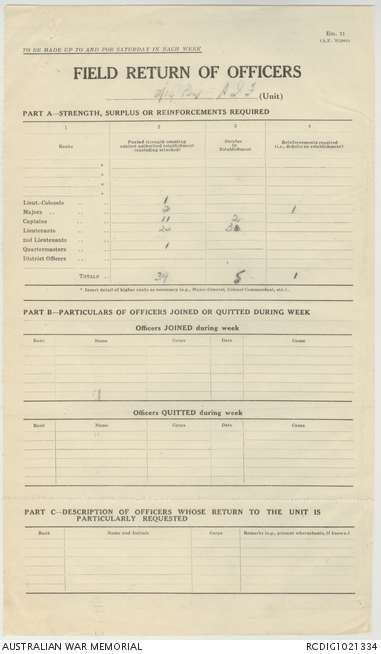 Em. 31
TO BE MADE UP TO AND FOR SATURDAY IN EACH WEEK
FIELD RETURN OF OFFICERS
2/14 Bn A I F (Unit)
PART A—STRENGTH, SURPLUS OR REINFORCEMENTS REQUIRED
1 2 3 4
Ranks Posted strength counting against authorized establishment (excluding attached) Surplus to Establishment Reinforcements required (i.e., deficits on establishment)
*
*
*
*
Lieut.-Colonels .. .. 1
Majors .. .. .. 2 1
Captains .. .. 11 2
Lieutenants .. ..
2nd Lieutenants .. ..
Quartermasters .. .. 1
District Officers .. ..
TOTALS .. 34 5 1
* Insert detail of higher ranks as necessary (e.g., Major-General, Colonel Commandant, etc.).
PART B—PARTICULARS OF OFFICERS JOINED OR QUITTED DURING WEEK
Officers JOINED during week
Rank Name Corps Date Cause
Officers QUITTED during week
Rank Name Corps Date Cause
PART C—DESCRIPTION OF OFFICERS WHOSE RETURN TO THE UNIT IS
PARTICULARLY REQUESTED
Rank Name and Initials Corps Remarks (e.g., present whereabouts, if known.)
AUSTRALIAN WAR MEMORIAL RCDIG1021334